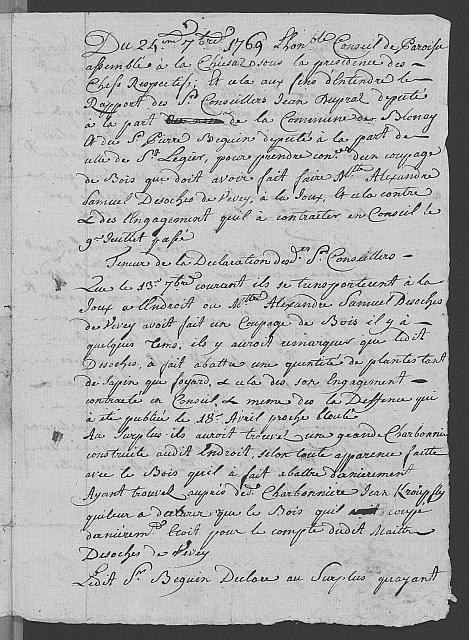 Du 24me 7bre 1769 L'honble Conseil de Paroisse
assemblé à la Chiesaz sous la présidence des
Chefs Respectifs; et cela aux fins d'entendre le
Rapport des Srs Conseillers Jean Dupraz député
à la part de la Commune des Blonay
& du Sr Pierre Beguin député à la part de
celle de St Legier, pour prendre con.ce d'un coupage
de Bois que doit avoir fait faire Mtre Alexandre
Samuel Desoches de Vevey, à la Joux, et cela contre
& des l'Engagement qu'il à contracter en Conseil le
9e Juillet passé
Teneur de la Declaration desd.ts Srs Conseillers
Que le 13e 7bre courant ils se transporterent à la
Joux a l'Endroit ou Mtre Alexandre Samuel Desoches
de Vevey avoit fait un Coupage de Bois il y à
quelques tems, ils y auroit remarques que ledit
Desoches, à fait abattre une quantité de plantes tant
de sapin que foyard, & cela des son Engagement
contracté en Conseil, & meme des la Deffence qui
à été publiée le 18e Avril proche Coulé
Au Surplus ils auroit trouvez une grande Charbonnie
construite audit Endroit, selon toute apparence faitte
avec le Bois qu'il à fait abattre dernièrement
Ayant trouvez auprès de d.te Charbonnière Jean
qui leur a declarer que le Bois qu'il coupe
dernièremt Etoit pour le compte dudit Maitre
Desoches de Vevey
Ledit Sr Beguin Declare au Surplus qu'ayant